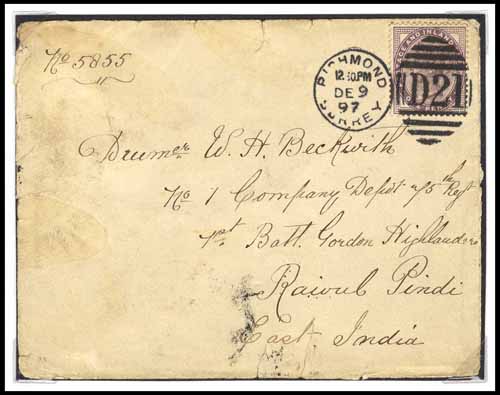 No 5855
RICHMOND
12.10.PM
DE 9
97
SURREY
POSTAGE AND INLAND
D21
Drumer W. H. Beckwith
No 1 Company Depot 75th Regt
1st Batt. Gordon Highlanders
Rawul Pindi
East India